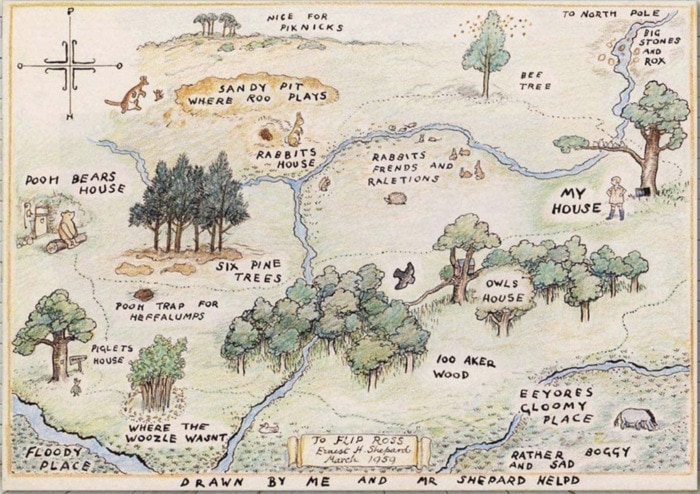 P
O O
H
NICE FOR
PIKNICKS
TO NORTH POLE
BIG
STONES
AND
ROX
BEE
TREE
SANDY PIT
WHERE ROO PLAYS
RABBITS
HOUSE
RABBITS
FRENDS AND
RALETIONS
POOH BEARS
HOUSE
MY
HOUSE
SIX PINE
TREES
OWLS
HOUSE
POOH TRAP FOR
HEFFALUMPS
PIGLETS
HOUSE
100 AKER
WOOD
EEYORES
GLOOMY
PLACE
WHERE THE
WOOZLE WASNT
FLOODY
PLACE
TO FLIP ROSS
Ernest H. Shepard
March 1959
RATHER BOGGY
AND SAD
DRAWN BY ME AND MR SHEPARD HELPD